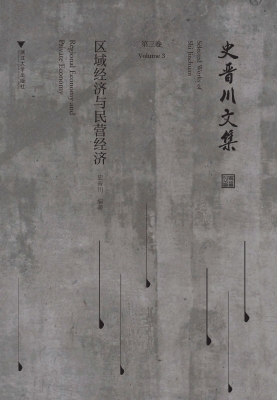 史晋川文集
Selected Works of
Shi Jinchuan
第三卷
Volume 3
区域经济与民营经济
Regional Economy and
Private Economy
史晋川 编著
浙江大学出版社